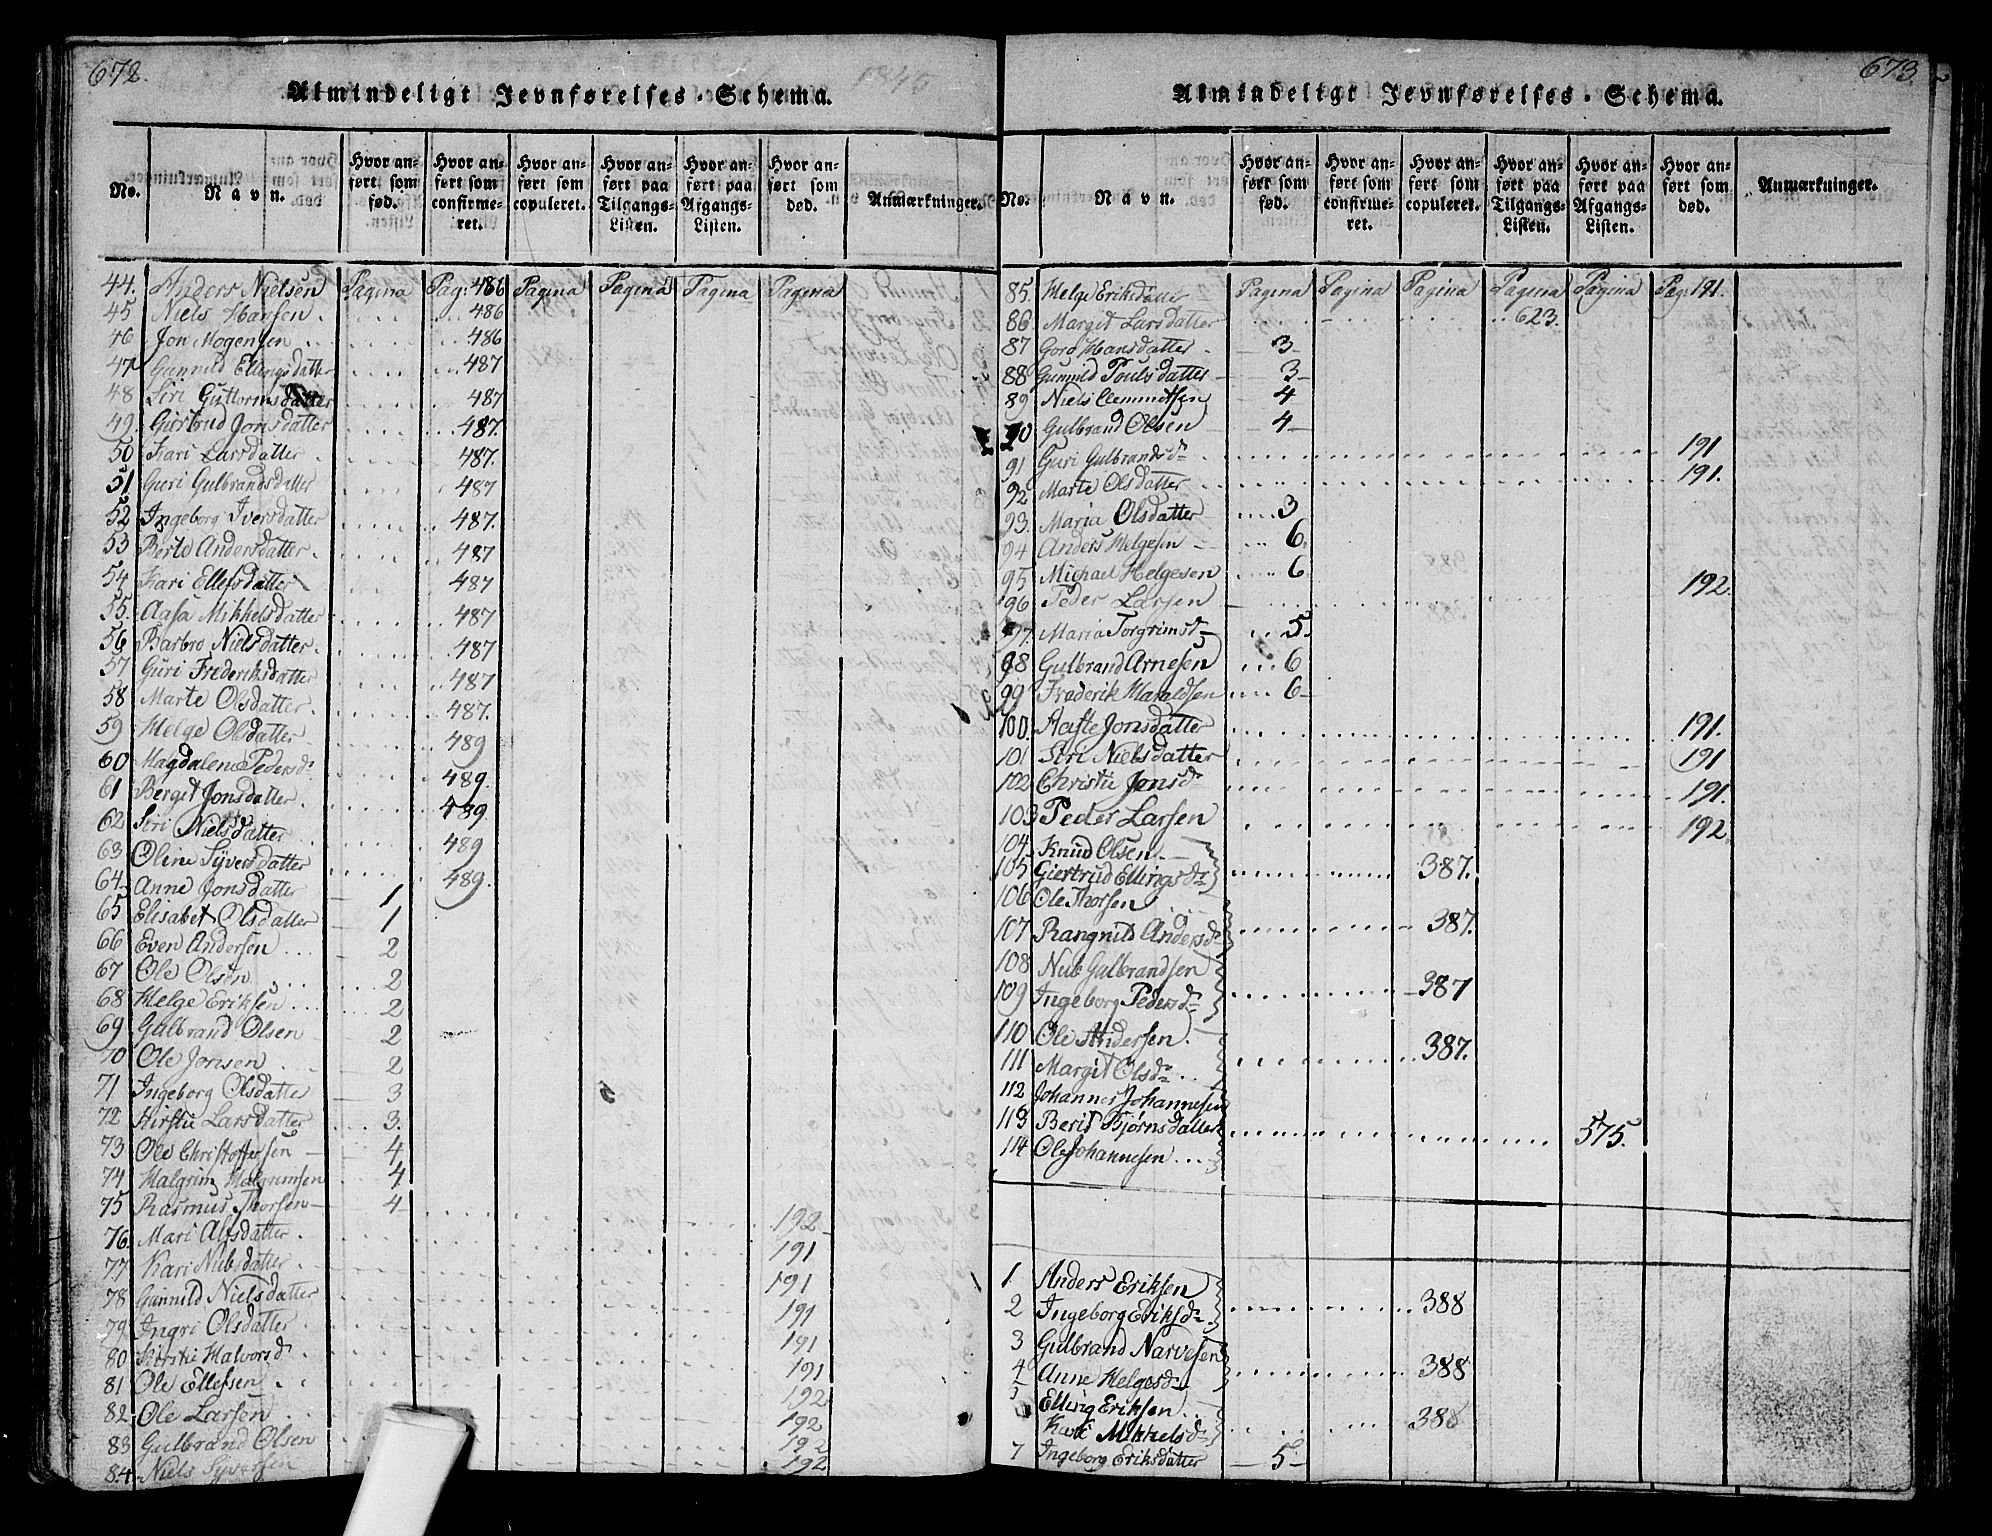 672.
Almindeligt Jevnførelses-Schema.
No.
Navn.
Hvor anført som fød.
Hvor anført som confirmeret.
Hvor anført som copuleret.
Hvor anført paa Tilgangs-Listen.
Hvor anført paa Afgangs-Listen.
Hvor anført som død.
Anmærkninger.
44. Anders Nielsen Pagina Pag: 486 Pagina Pagina Pagina Pagina
45 Niels Hansen 486
46 Jon Mogensen 486
47 Gunnild Ellingsdatter 487
48 Siri Guttormsdatter 487
49. Giertrud Jonsdatter 487.
50 Kari Larsdatter 487.
51 Guri Gulbrandsdatter 487
52 Ingeborg Iversdatter 487.
53 Berte Andersdatter 487
54 Kari Ellefsdatter 487
55. Aasa Mikkelsdatter 487
56 Barbro Nielsdatter 487
57 Guri Frederiksdatter 487
58 Marte Olsdatter 487.
59 Helge Olsdatter 489
60 Magdalene Pedersd: 489.
61 Berget Jonsdatter 489.
62 Siri Nielsdatter 489
63 Olene Syversdatter 489.
64 Anne Jonsdatter 1
65 Elisabet Olsdatter 1
66 Even Andersen 2
67 Ole Olsen 2
68 Helge Eriksen 2
69 Gulbrand Olsen 2
70 Ole Jonsen 2
71 Ingeborg Olsdatter 3
72 Kirstie Larsdatter 3.
73 Ole Christoffersen 4
74 Halgrim Halgrimsen 4
75 Rasmus Thorsen 4
76. Mari Alfsdatter 192
77 Kari Nielsdatter 191
78 Gunnild Nielsdatter 191
79 Ingri Olsdatter 191
80 Kirstie Halvorsd 191
81 Ole Ellefsen 191
82 Ole Larsen 192
83 Gulbrand Olsen 192
84 Niels Syversen 192
673.
Almindeligt Jevnførelses-Schema.
No.
Navn.
Hvor anført som fød.
Hvor anført som confirmeret.
Hvor anført som copuleret.
Hvor anført paa Tilgangs-Listen.
Hvor anført paa Afgangs-Listen.
Hvor anført som død.
Anmærkninger.
85. Helge Eriksdatter Pagina Pagina Pagina Pagina Pagina Pag: 191.
86 Margit Larsdatter 623.
87 Goro Hansdatter 3
88 Gunnild Poulsdatter 3
89 Niels Clemmetsen 4
90 Gulbrand Olsen 4
91 Guri Gulbrandsd: 191
92 Marte Olsdatter 191.
93. Maria Olsdatter 3
94 Anders Helgesen 6.
95 Michael Helgesen 6
96 Peder Larsen 192.
97. Maria Torgrimsd: 5
98 Gulbrand Arnesen 6
99 Frederik Haraldsen 6
100. Aaste Jonsdatter 191.
101 Siri Nielsdatter 191
102 Christie Jonsd: 191.
103 Peder Larsen 192
104. Knud Olsen
105 Giertrud Ellingsd: 387.
106 Ole Thorsen
107 Rangnild Andersd: 387.
108 Niels Gulbrandsen
109 Ingeborg Pedersd: 387
110 Ole Andersen
111 Margit Olsd: 387.
112 Johannes Johannesen
113 Berit Bjørnsdatter 575.
114 Ole Johannesen
1. Anders Eriksen
2 Ingeborg Eriksd: 388
3 Gulbrand Narvesen
4 Anne Helgesd: 388
5 Elling Eriksen
Kari Mikkelsd: 388
7 Ingeborg Eriksdatter 5